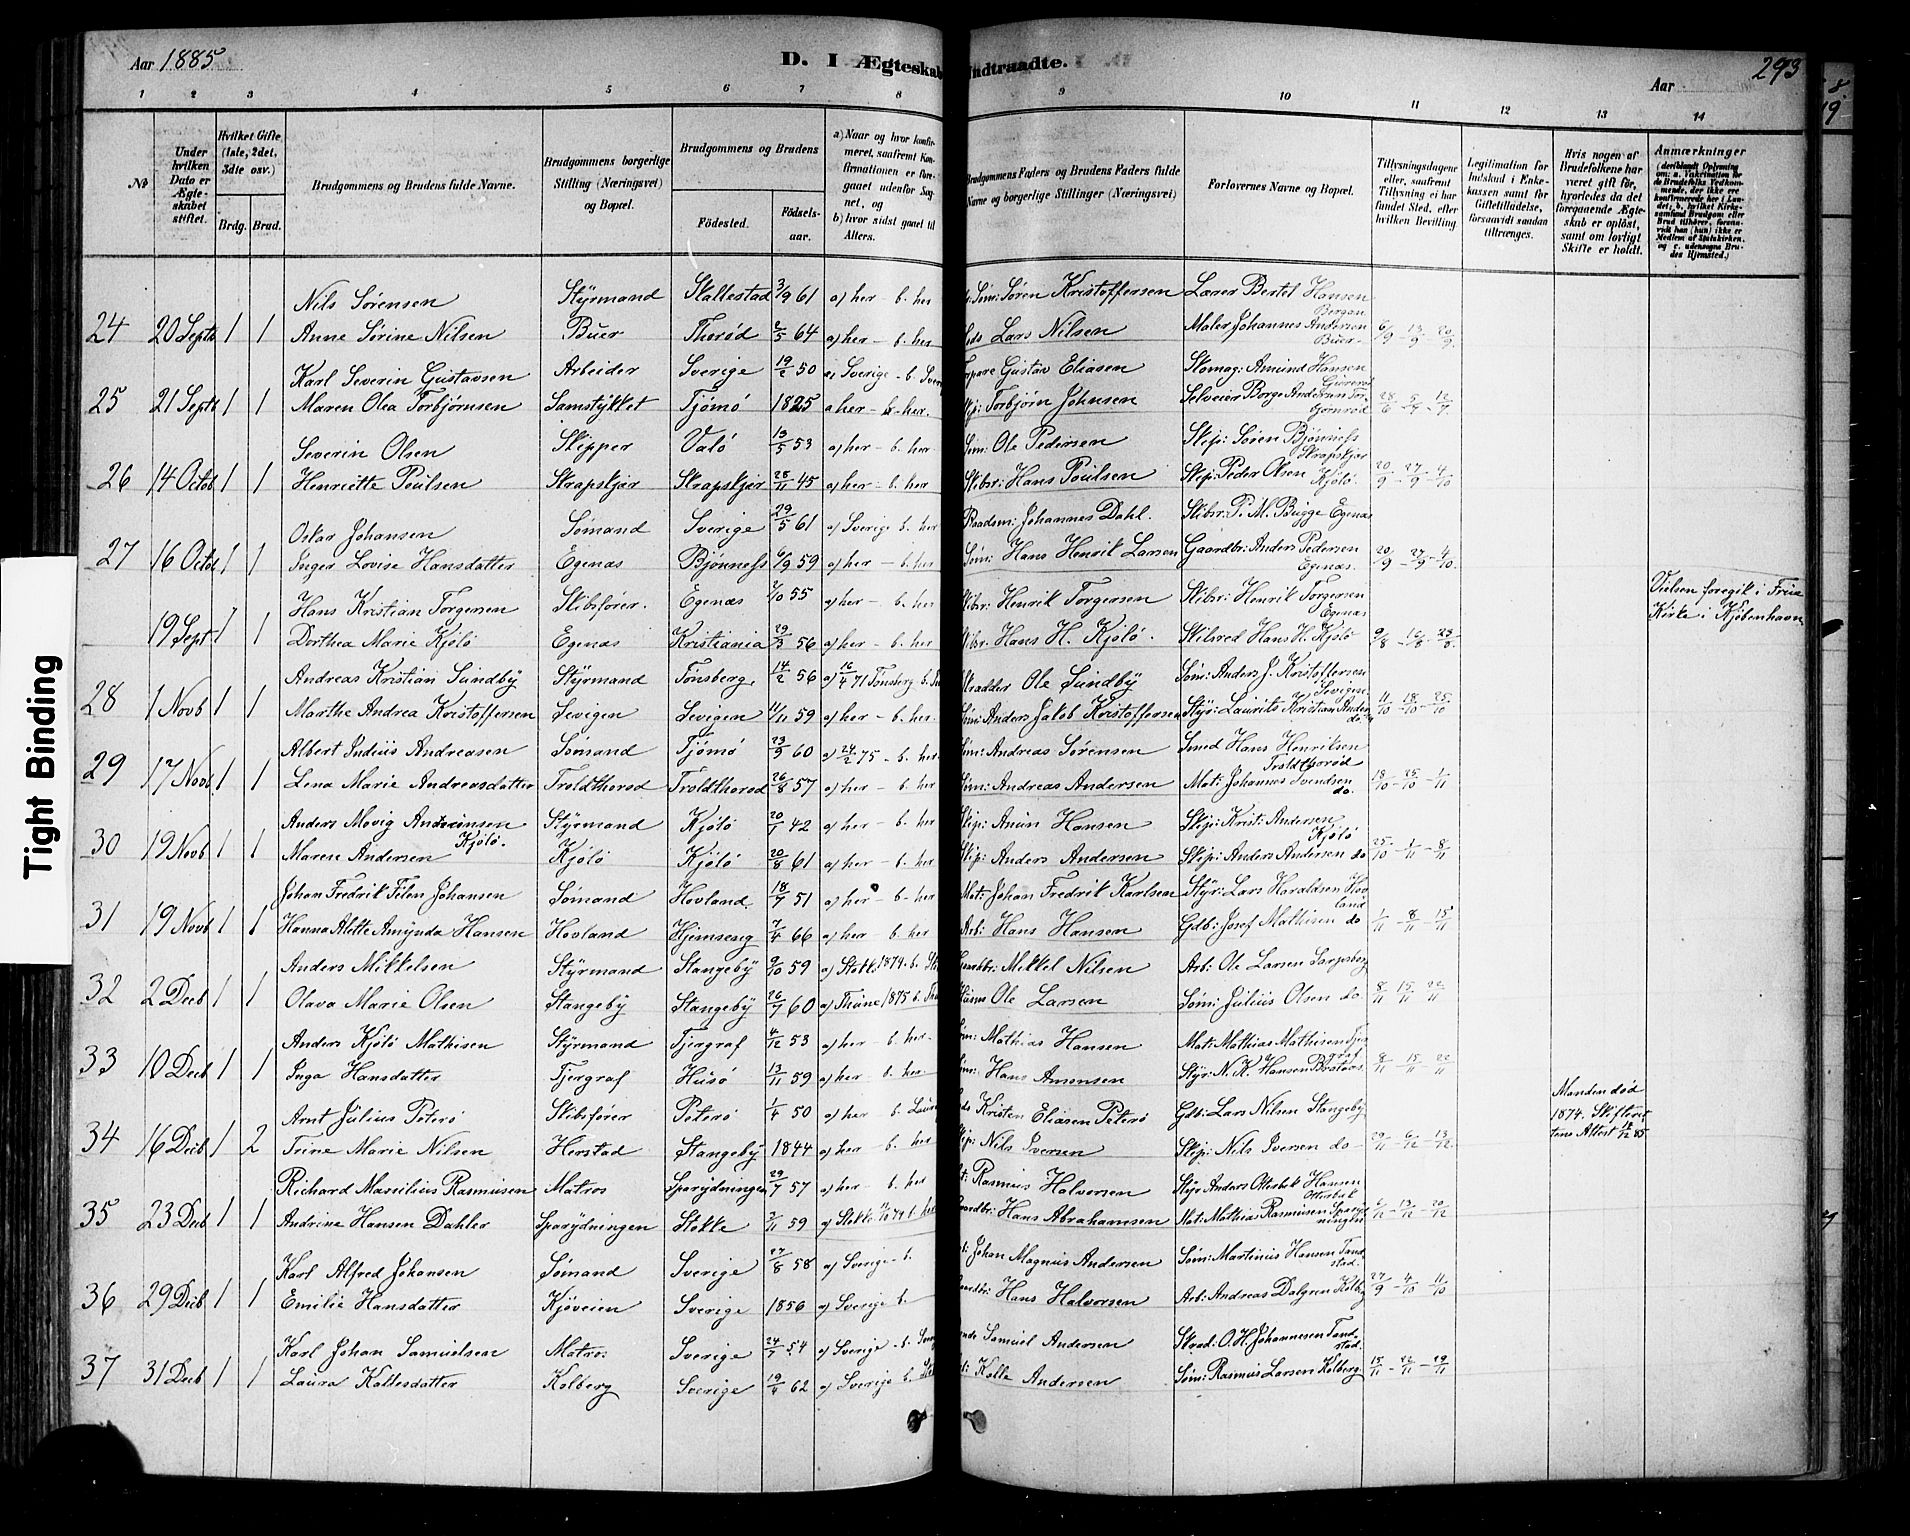 Aar 1885
D. I Ægteskab Indtraadte.
Aar
293
1 2 3 4 5 6 7 8 9 10 11 12 13 14
No
Under hvilken Dato er Ægteskabet stiftet.
Hvilket Gifte (1ste, 2det, 3die osv.)
Brdg. Brud.
Brudgommens og Brudens fulde Navne.
Brudgommens borgerlige Stilling (Næringsvei) og Bopæl.
Brudgommens og Brudens
Födested. Födsels-aar.
a) Naar og hvor konfirmeret, saafremt Konfirmationen er foregaaet udenfor Sognet, og
b) hvor sidst gaaet til Alters.
Brudgommens Faders og Brudens Faders fulde Navne og borgerlige Stillinger (Næringsvei)
Forlovernes Navne og Bopæl.
Tillysningsdagene eller, saafremt Tillysning ei har fundet Sted, efter hvilken Bevilling
Legitimation for Indskud i Enkekassen samt for Giftetilladelse, forsaavidt saadan tiltrænges.
Hvis nogen af Brudefolkene har været gift för, hvorledes da det foregaaende Ægteskab er oplöst, samt om lovligt Skifte er holdt.
Anmærkninger
Nils Sørensen Styrmand Skallestad 3/9 61 a) her - b. her Søm: Søren Kristoffersen Lærer Bertel Hansen Bergan
24 20 Septb 1 1 Anne Sørine Nilsen Buer Thorød 2/5 64 a) her - b. her Lars Nilsen Maler Johannes Andersen Buer 6/9 - 13/9 - 20/9
Karl Severin Gustavsen Arbeider Sverige 19/2 50 a) Sverige - b. Gustav Eliasen Skomag: Amund Hansen
25 21 Septb 1 1 Maren Olea Torbjørnsen Samstykket Tjømø 1825 a her - b. her. Torbjørn Johnsen Selveier Borge Andersen 28/6 - 5/7 - 12/7
Severin Olsen Skipper Valø 13/5 53 a) her - b. her Søm: Ole Pedersen Skip: Søren Bjønness Skrapskjær
26 14 Octob 1 1 Henriette Poulsen Skrapskjær Skrapskjær 28/11 45 a) her - b. her Skibsr: Hans Poulsen Skip: Peder Olsen Kjølø. 20/9 - 27/9 - 4/10
Oskar Johansen Sømand Sverige 29/5 61 a) Sverige b. her Raadsm: Johannes Dahl. Skibsr: P. M. Bugge Egenæs
27 16 Octob 1 1 Inger Lovise Hansdatter Egenæs Bjønness 6/9 59 a) her - b. her Søm: Hans Henrik Larsen Gaardbr: Anders Pedersen Egenæs. 20/9 - 27/9 - 4/10.
Hans Kristian Torgersen Skibsfører. Egenæs 7/10 55 a) her - b. her Skibsr: Henrik Torgersen Skibsr: Henrik Torgersen Egenæs Vielsen foregik i Frue
19 Sept. 1 1 Dorthea Marie Kjølø Egenæs Kristiania 29/3 56 a) her - b. her Skibsr: Hans H. Kjølø. Skibsred Hans H. Kjølø 9/8 - 16/8 - 23/8 Kirke i Kjøbenhavn
Andreas Kristian Sundby Styrmand Tønsberg 14/2 56 a) 16/4 71 Tønsberg b. Skrædder Ole Sundby Søm: Anders J. Kristoffersen Sevigen
28 1 Novb 1 1 Marthe Andrea Kristoffersen Sevigen Sevigen 11/11 59 a) her - b. her Søm: Anders Jakob Kristoffersen Styr: Laurits Kristian Anders do 11/10 - 18/10 - 25/10
Albert Julius Andreasen Sømand Tjømø 23/9 60 a) 24/2 75 - b. her Søm: Andreas Sørensen Smed Hans Henriksen Troldthorød
29 17 Novb. 1 1 Lena Marie Andreasdatter Troldthorød Troldthorød 26/8 57 a) her - b. her Søm: Andreas Andersen Mat: Johannes Svendsen do. 18/10 - 25/10 - 1/11
Anders Movig Andrinsen Kjølø. Styrmand Kjølø 20/1 42 a) her - b. her Skip: Anun Hansen Skip: Krist: Andersen Kjølø
30 19 Novb 1 1 Maren Andersen Kjølø Kjølø 20/8 61 a) her - b. her Skip: Anders Andersen Skip: Anders Andersen do 25/10 - 1/11 - 8/11
Johan Fredrik Johansen Sømand Hovland 18/7 51 a) her - b. her Mat: Johan Fredrik Karlsen Styr: Lars Haraldsen Hovland
31 19 Novb 1 1 Hanna Alette Amynda Hansen Hovland Hjemseng 7/4 66 a) her - b. her Arb: Hans Hansen Gdb: Josef Mathisen do 1/11 - 8/11 - 15/11
Anders Mikkelsen Styrmand Stangeby 9/10 59 a) Stokke 1874. b. Mikkel Nilsen Arb: Ole Larsen
32 2 Decb 1 1 Olava Marie Olsen Stangeby Stangeby 26/7 60 a) 1875 b. Ole Larsen Søm: Julius Olsen do 8/11 15/11 22/11
Anders Kjølø Mathisen Styrmand Tjergraf 4/12 53 a) her - b. her. Mathias Hansen Mat: Mathias Mathisen
33 10 Decb 1 1 Inga Hansdatter Tjergraf Husø 13/11 59 a) her - b. her Hans Amonsen Styr: N. K. Hansen 8/11 - 15/11 - 22/11
Arnt Julius Peterø Skibsfører Peterø 1/4 50 a) her b. Kristen Eliasen Peterø Gdb: Lars Nilsen Stangeby Manden død
34 16 Decb 1 2 Trine Marie Nilsen Herstad Stangeby 1844 a) her - b. her Skip: Nils Iversen Skip: Nils Iversen do - 29/11 - 6/12 - 13/12 1874. Skifteret
tens Attest 85
Richard Marsilius Rasmusen Matros Sparydningen 29/7 57 a) her - b. her Rasmus Halvorsen Styr Anders Otterbek Hansen Otterbek
35 23 Decb 1 1 Andrine Hansen Dahler Sparydningen Stokke 2/11 59 a) Stokke b. her Hans Abrahamsen Mat: Mathias Rasmusen Sparydningen 6/12 - 13/12 - 20/12
Karl Alfred Johansen Sømand Sverige 27/8 58 a) Sverige - b. Johan Magnus Andersen Søm: Martinius Hansen Tandstad.
36 29 Decb 1 1 Emilie Hansdatter Kjøveien Sverige 1856 a) Sverige b. Hans Halvorsen Arb: Andreas Dalgren Kolberg 27/9 - 4/10 - 11/10
Karl Johan Samuelsen Matros Sverige 24/7 54 a) Sverige - b. Samuel Andersen Skræd: O. H. Johannesen Tandstad.
37 31 Decb 1 1 Laura Kallesdatter Kolberg Sverige 19/4 62 a) Sverige b. Kalle Andersen Søm: Rasmus Larsen Kolberg 15/11 - 22/11 - 29/11
Tight Binding